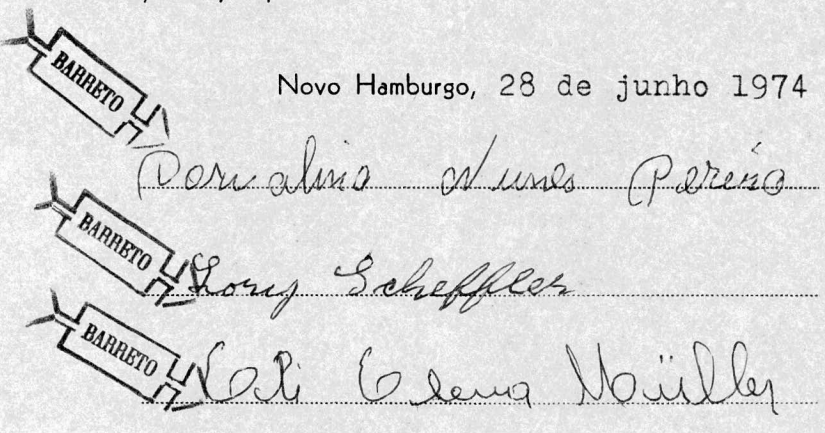 BARRETO
Novo Hamburgo, 28 de junho 1974
Dorvalino Nunes Pereira
BARRETO
Lory Scheffler
BARRETO
Elena Müller